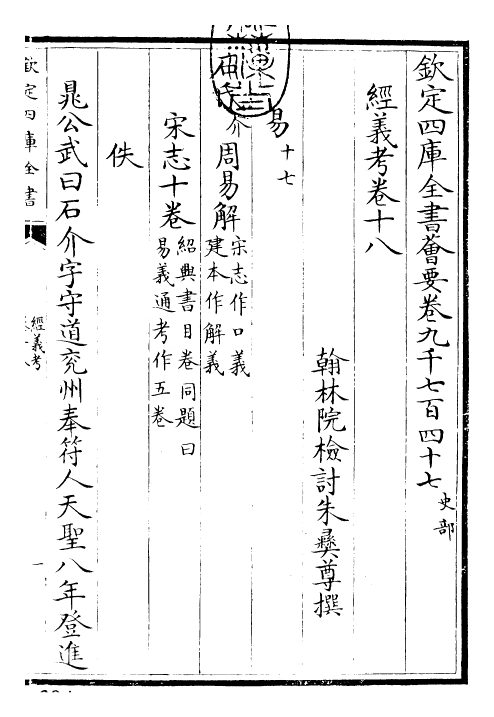 欽定四庫全書薈要卷九千七百四十七史部
經義考卷十八
翰林院檢討朱彝尊撰
易十七
石氏介周易解宋志作口義建本作解義
宋志十卷紹興書目卷同題曰易義通考作五卷
佚
晁公武曰石介字守道兖州奉符人天聖八年登進
欽定四庫全書
經義考
一